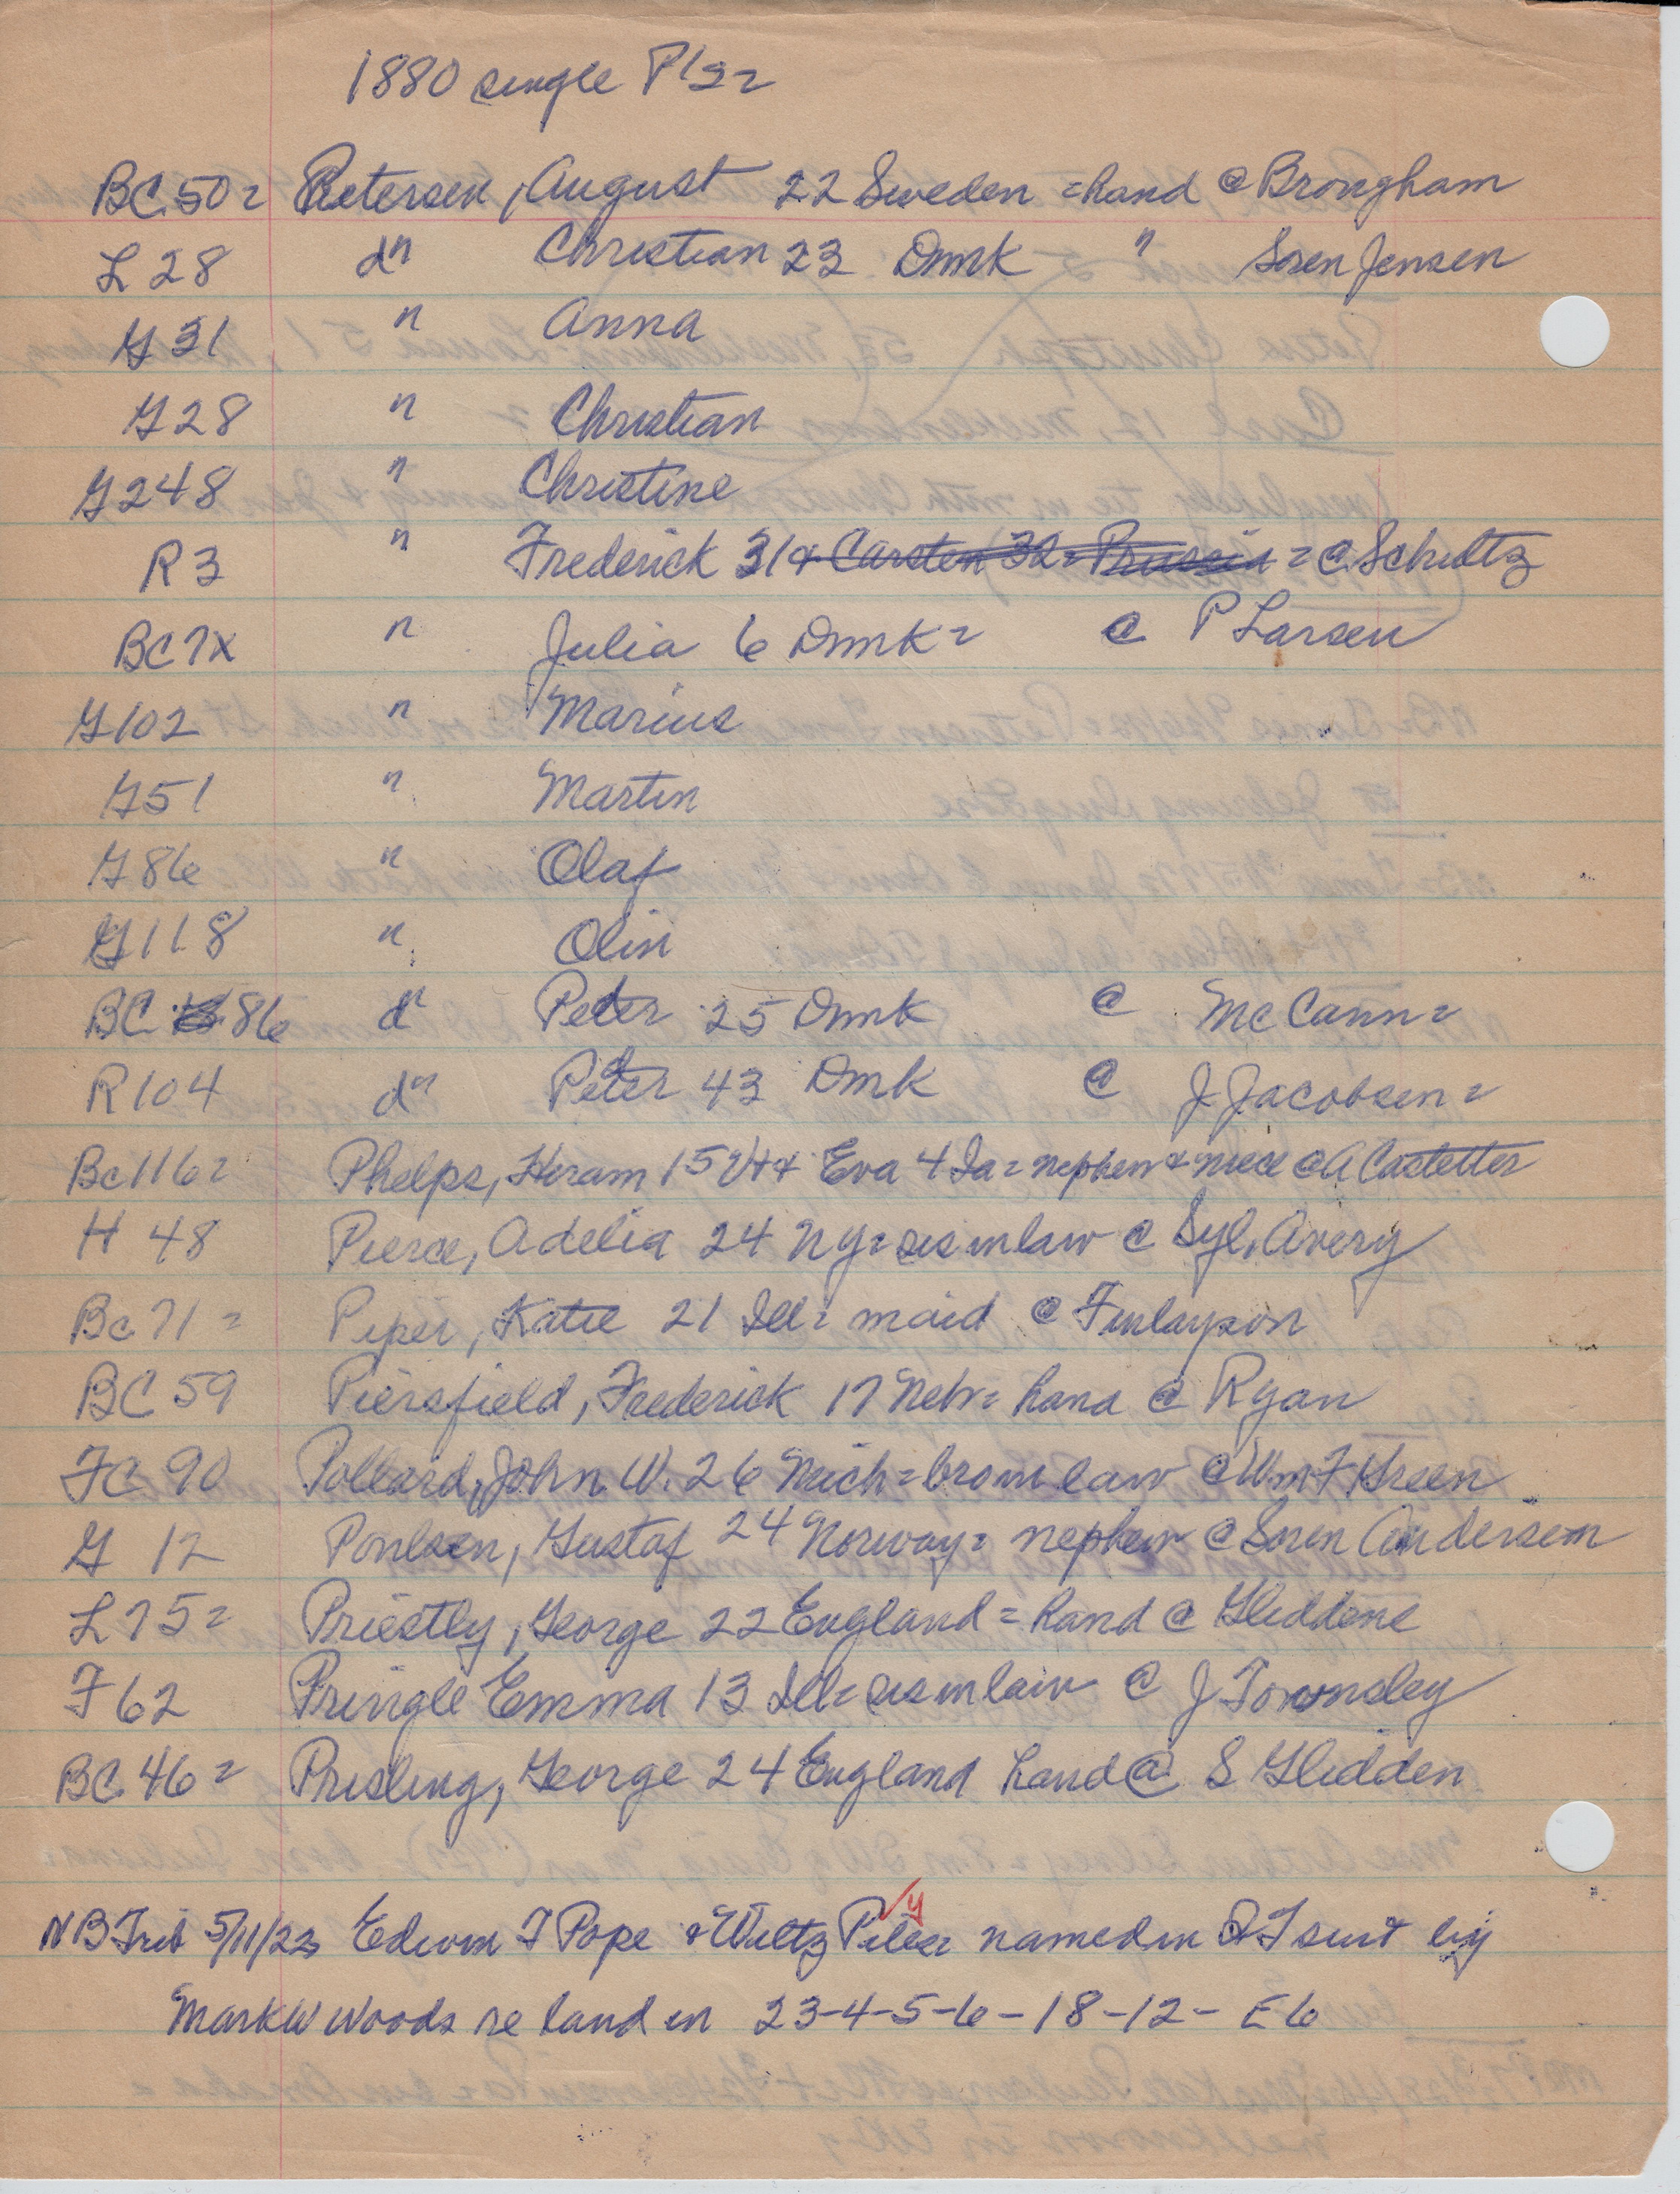 1880 single P
BC 50 = Petersen, August 22 Sweden = hand @ Brongham
L 28 do Christian 23 Dmk " Soren Jensen
G 31 " Anna
G 28 " Christian
G 248 " Christine
R 3 " Frederick 31 & Carsten 32 = Prussia = @ Schultz
BC 7X " Julia 6 Dmk = @ P Larsen
G 102 " Marius
G 51 " Martin
G 86 " Olaf
G 118 " Olin
BC 86 do Peter 25 Dmk @ McCann =
R 104 do Peter 43 Dmk @ J Jacobsen =
Bc 116 = Phelps, Hiram 15 Vt & Eva 4 Ia = nephew & niece @ A Castetter
H 48 Pierce, Adelia 24 NY = sis in law @ Syl. Avery
Bc 71 = Piper, Katie 21 Ill = maid @ Finlayson
BC 59 Piersfield, Frederick 17 Nebr = hand @ Ryan
FC 90 Pollard, John W. 26 Mich = bro in law @ Wm F Green
G 12 Ponlsen, Gustaf 24 Norway = nephew @ Soren Andersen
L 75 = Priestly, George 22 England = hand @ Gliddens
F 62 Pringle Emma 13 Ill = sis in law @ J Townsley
BC 46 = Prisling, George 24 England hand @ S Glidden
NB Trib 5/11/23 Edwin F Pope & Wiltz named in QT suit by
Mark W Woods re land in 23-4-5-6-18-12- E6